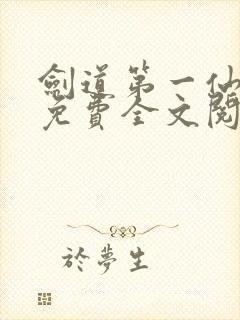 劍道第一仙
免費全文閱
於夢生